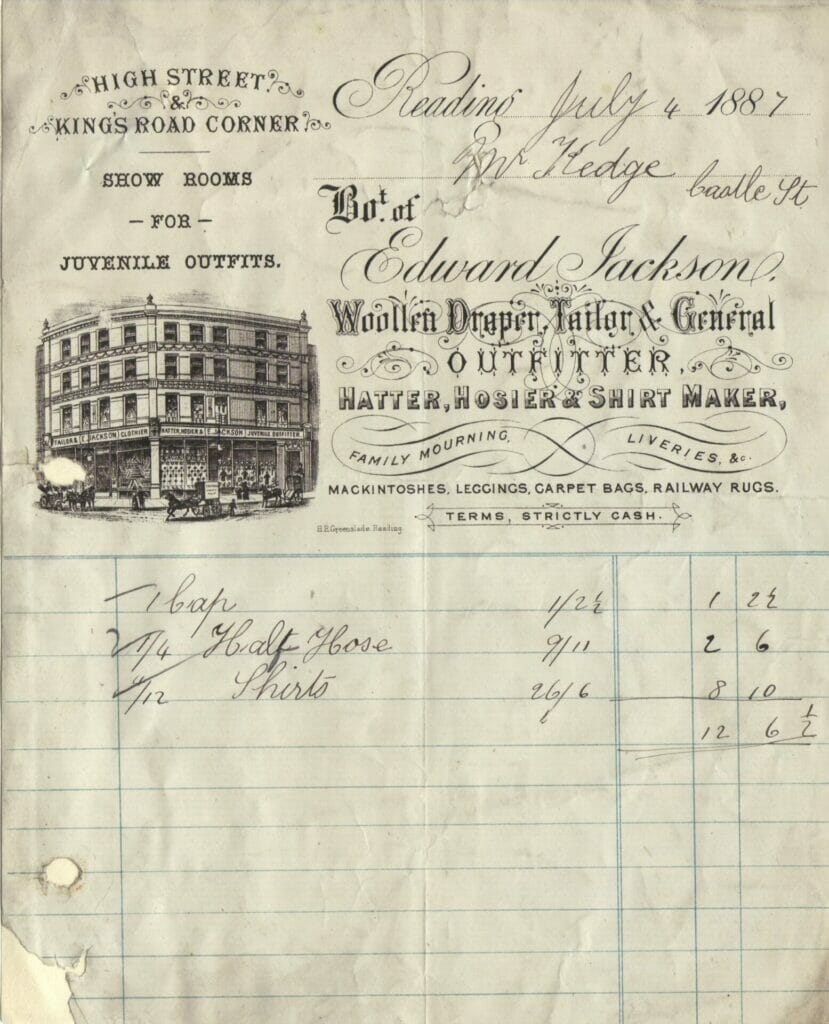 HIGH STREET
&
KING'S ROAD CORNER.
SHOW ROOMS
— FOR —
JUVENILE OUTFITS.
Reading July 4 1887
Mr Kedge
Castle St
Bot. of
Edward Jackson.
Woollen Draper, Tailor & General
OUTFITTER,
HATTER, HOSIER & SHIRT MAKER,
FAMILY MOURNING, LIVERIES, &c.
MACKINTOSHES, LEGGINGS, CARPET BAGS, RAILWAY RUGS.
TERMS, STRICTLY CASH.
TAILOR & E. JACKSON CLOTHIER HATTER, HOSIER & E. JACKSON JUVENILE OUTFITTER
H.R. Greenslade. Reading.
1 Cap 1/2½ 1 2½
1/4 Half Hose 9/11 2 6
4/12 Shirts 26/6 8 10
12 6 ½